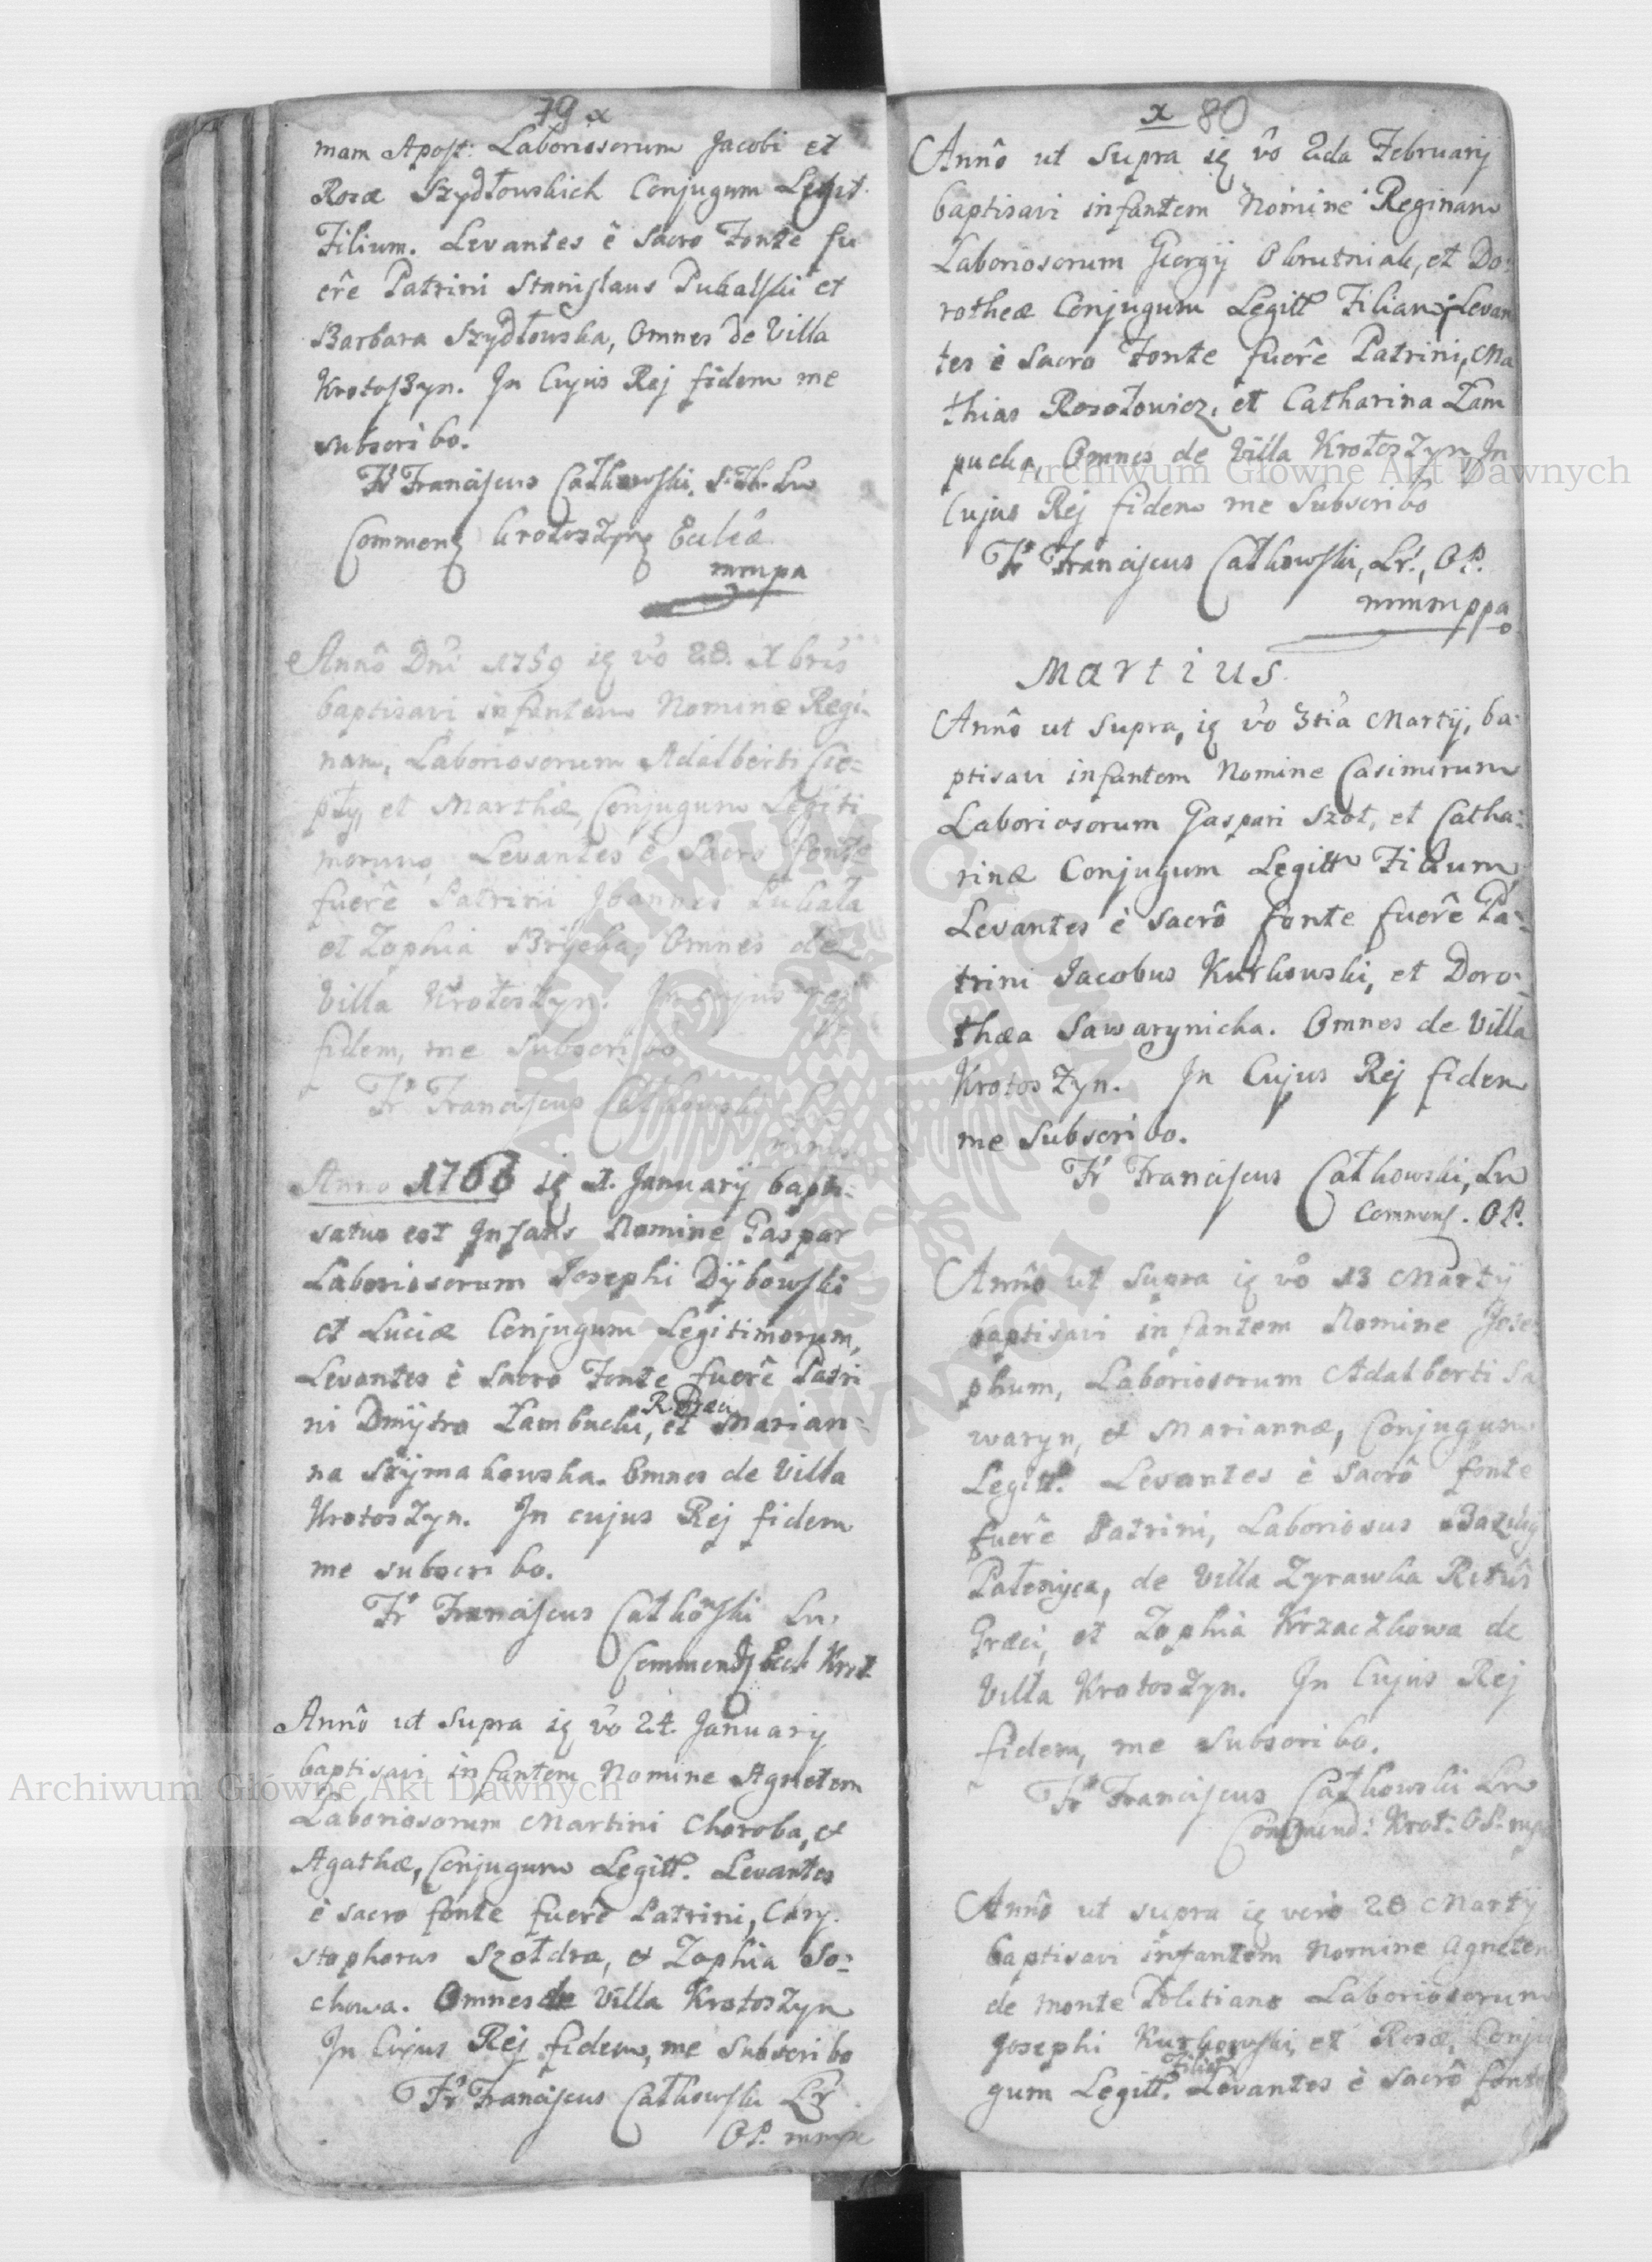 79 x
mam Apost: Laboriosorum Jacobi et
Rosæ Szydłowskich Conjugum Legit.
Filium. Levantes è Sacro Fonte fu
erê Patrini Stanislaus Puhalski et
Barbara Szydłowska, Omnes de Villa
Krotoszyn. In Cujus Rej fidem me
subscribo.
Fr Franciscus Całkowski, S. Th. Lr
Commen Krotoszyn Eccliæ
mmpa
Annô Dni 1759 ig vo 28. Xbris
baptisavi infantem Nomine Regi-
nam, Laboriosorum Adalberti Cie=
pły, et Marthæ, Conjugum Legiti
morum, Levantes è Sacro fonte
fuerê Patrini Joannes Puhała
et Zophia Bryeha, Omnes de
Villa Krotoszyn. In cujus rej
fidem, me Subscribo
Fr Franciscus Całkowski Lr
mmp
Anno 1760 ig 1. January bapti-
satus est Infans Nomine Gaspar
Laboriosorum Josephi Dÿbowski
et Luciæ Conjugum Legitimorum,
Levantes è Sacro Fonte fuerê Patri
R. Græci
ni Dmÿtro Zambuchi, et Marian-
na Szÿmakowska. Omnes de Villa
Krotoszyn. In cujus Rej fidem
me subscribo.
Fr Franciscus Całkowski Lr.
Commend Eccl Krot
Annô ut Supra ig vo 24. January
baptisavi infantem Nomine Agnetem
Laboriosorum Martini Choroba, et
Agathæ, Conjugum Legitt. Levantes
è sacro fonte fuerê Patrini, Cÿry.
stophorus Szołdra, et Zophia So=
chowa. Omnes de Villa Krotoszyn
In Cujus Rej fidem, me Subscribo
Fr Franciscus Całkowski Lr
OP. mmpa
x 80
Annô ut Supra ig vô 2da February
baptisavi infantem Nomine Reginam
Laboriosorum Georgÿ Okrutniak, et Do=
rotheæ Conjugum Legitt Filiam, Levan
tes è Sacro Fonte fuerê Patrini, Ma
thias Rosołowicz, et Catharina Zam
pucha, Omnes de Villa Krotoszyn In
Cujus Rej fidem me Subscribo
Fr Franciscus Całkowski, Lr., OP.
mmmppa
Martius
Annô ut Supra, ig vo 3tia Martÿ, ba-
ptisavi infantem Nomine Casimirum
Laboriosorum Gaspari Szot, et Catha=
rinæ Conjugum Legitt Filium
Levantes è Sacrô fonte fuerê Pa=
trini Jacobus Kurkowski, et Doro=
thæa Sawarynicha. Omnes de Villa
Krotoszyn. In Cujus Rej fidem
me Subscribo.
Fr Franciscus Całkowski, Lr
Commen. OP.
Annô ut Supra ig vo 13 Martÿ
baptisavi infantem Nomine Jose=
phum, Laboriosorum Adalberti Sa
waryn, et Mariannæ, Conjugum
Legitt. Levantes è Sacrô fonte
fuerê Patrini, Laboriosus Bazyly
Patenyca, de Villa Zyrawka Ritûs
Græci, et Zophia Krzaczkowa de
Villa Krotoszyn. In Cujus Rej
fidem, me Subscribo.
Fr Franciscus Całkowski Lr
Commend: Krot: OP. mpa
Annô ut supra ig vero 28 Martÿ
baptisavi infantem Nomine Agnetem
de Monte Politiano Laboriosorum
Josephi Kurkowski, et Rosæ, Conju
Filiam
gum Legitt. Levantes è Sacrô fonte
Archiwum Główne Akt Dawnych
Archiwum Główne Akt Dawnych
ARCHIWUM GŁÓWNE AKT DAWNYCH